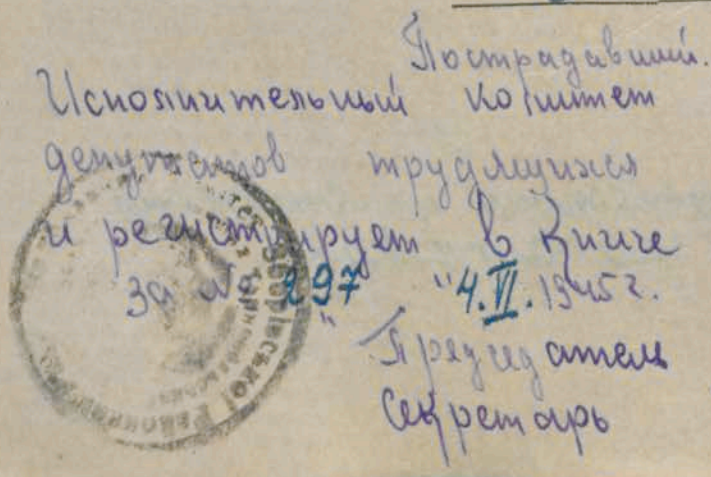 Пострадавший.
Исполнительный комитет
депутатов трудящихся
и регистрирует в книге
за № 297 "4.VI.1945 г.
"
Председатель
Секретарь
Зборівської Район